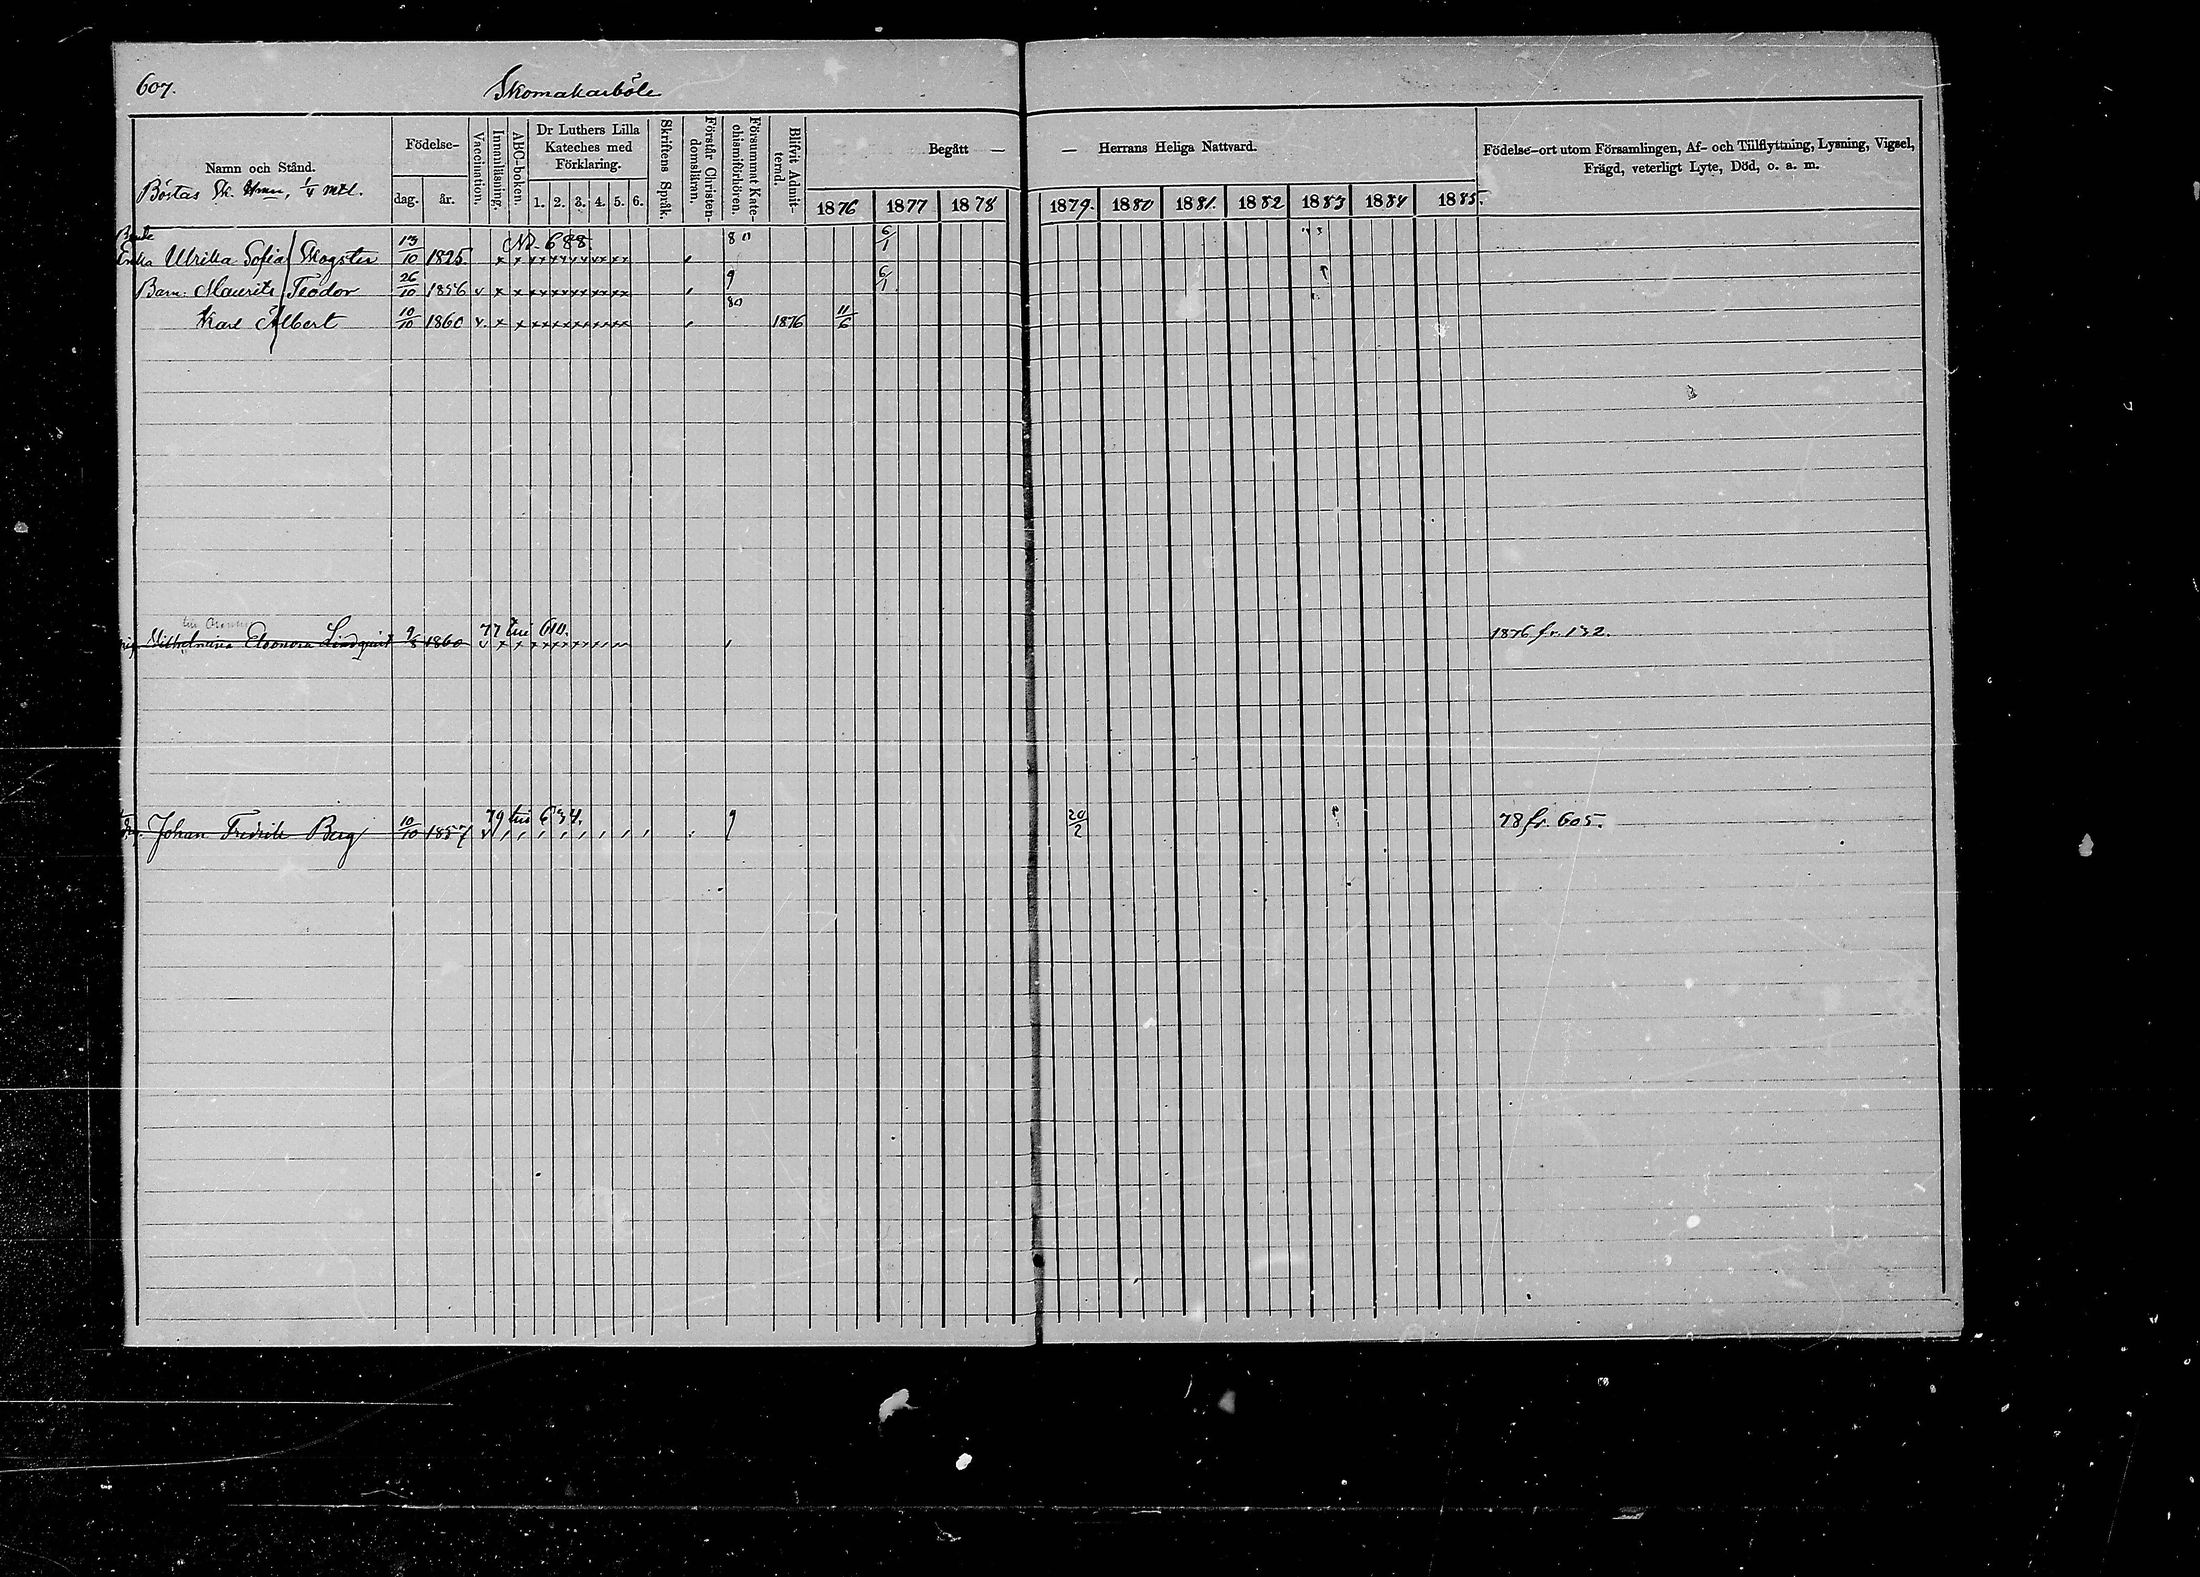 607.
Skomakarböle
Namn och Stånd.
Böstas Sk. Hmn, 1/4 mtl.
Födelse-
dag.
år.
Vaccination.
Innanläsning.
ABC-boken.
Dr Luthers Lilla
Kateches med
Förklaring.
1. 2. 3. 4. 5. 6.
Skriftens Språk.
Förstår Christen-
domsläran.
Försummat Kate-
chismiförhören.
Blifvit Admit-
terad.
Begått —
1876 1877 1878
— Herrans Heliga Nattvard.
1879. 1880 1881. 1882 1883 1884 1885.
Födelse-ort utom Församlingen, Af- och Tillflyttning, Lysning, Vigsel,
Frägd, veterligt Lyte, Död, o. a. m.
Bonde
Enka Ulrika Sofia Skogster 13/10 1825. N. 688. 80 6/1
Barn: Maurits Teodor 26/10 1856 v x x 9 6/1
Karl Albert 10/10 1860 v. x x 80 1876 11/6
Vilhelmina Eleonora Lindqvist 9/8 1860 77 till 610. 1876 fr. 132.
Johan Fredrik Berg 10/10 1857 79 till 634. 9 20/2 78 fr. 605.